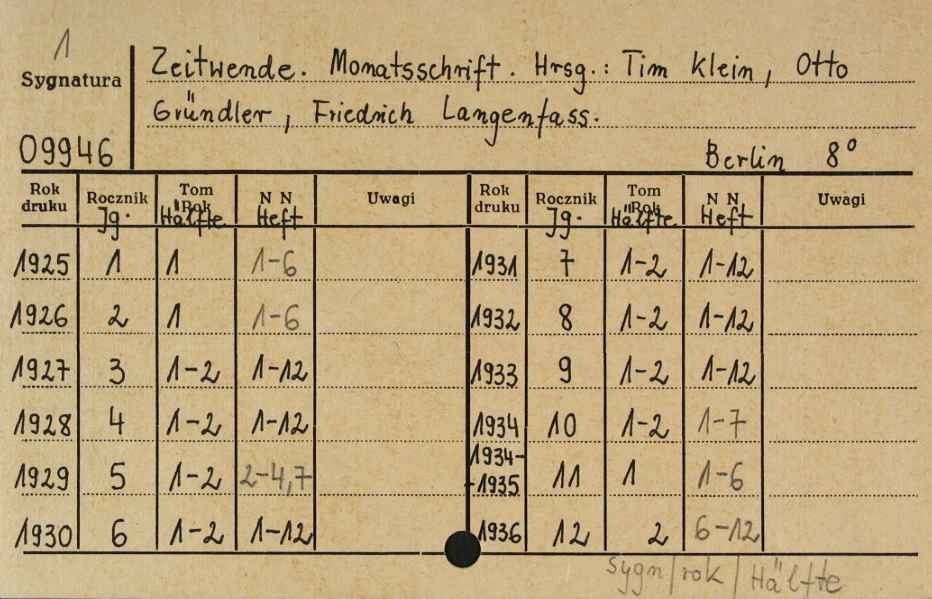 1
Sygnatura
Zeitwende. Monatsschrift. Hrsg.: Tim Klein, Otto
Gründler, Friedrich Langenfass.
09946
Berlin 8°
Rok druku Rocznik Tom Rok N N Uwagi Rok druku Rocznik Tom Rok N N Uwagi
Jg. Hälfte Heft Jg. Hälfte Heft
1925 1 1 1-6 1931 7 1-2 1-12
1926 2 1 1-6 1932 8 1-2 1-12
1927 3 1-2 1-12 1933 9 1-2 1-12
1928 4 1-2 1-12 1934 10 1-2 1-7
1929 5 1-2 2-4,7 1934-1935 11 1 1-6
1930 6 1-2 1-12 1936 12 2 6-12
sygn/rok/Hälfte